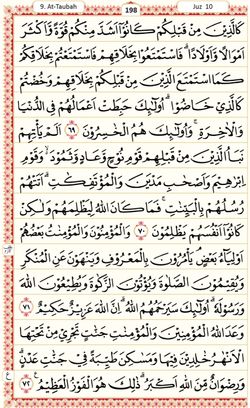 9. At-Taubah 198 Juz 10
كَالَّذِيْنَ مِنْ قَبْلِكُمْ كَانُوْٓا اَشَدَّ مِنْكُمْ قُوَّةً وَّاَكْثَرَ
اَمْوَالًا وَّاَوْلَادًاۗ فَاسْتَمْتَعُوْا بِخَلَاقِهِمْ فَاسْتَمْتَعْتُمْ بِخَلَاقِكُمْ
كَمَا اسْتَمْتَعَ الَّذِيْنَ مِنْ قَبْلِكُمْ بِخَلَاقِهِمْ وَخُضْتُمْ
كَالَّذِيْ خَاضُوْاۗ اُولٰۤىِٕكَ حَبِطَتْ اَعْمَالُهُمْ فِى الدُّنْيَا
وَالْاٰخِرَةِۚ وَاُولٰۤىِٕكَ هُمُ الْخٰسِرُوْنَ ٦٩ اَلَمْ يَأْتِهِمْ
نَبَاُ الَّذِيْنَ مِنْ قَبْلِهِمْ قَوْمِ نُوْحٍ وَّعَادٍ وَّثَمُوْدَ ەۙ وَقَوْمِ
اِبْرٰهِيْمَ وَاَصْحٰبِ مَدْيَنَ وَالْمُؤْتَفِكٰتِۗ اَتَتْهُمْ
رُسُلُهُمْ بِالْبَيِّنٰتِۚ فَمَا كَانَ اللّٰهُ لِيَظْلِمَهُمْ وَلٰكِنْ
كَانُوْٓا اَنْفُسَهُمْ يَظْلِمُوْنَ ٧٠ وَالْمُؤْمِنُوْنَ وَالْمُؤْمِنٰتُ بَعْضُهُمْ
اَوْلِيَاۤءُ بَعْضٍۘ يَأْمُرُوْنَ بِالْمَعْرُوْفِ وَيَنْهَوْنَ عَنِ الْمُنْكَرِ
وَيُقِيْمُوْنَ الصَّلٰوةَ وَيُؤْتُوْنَ الزَّكٰوةَ وَيُطِيْعُوْنَ اللّٰهَ
وَرَسُوْلَهٗۗ اُولٰۤىِٕكَ سَيَرْحَمُهُمُ اللّٰهُۗ اِنَّ اللّٰهَ عَزِيْزٌ حَكِيْمٌ ٧١
وَعَدَ اللّٰهُ الْمُؤْمِنِيْنَ وَالْمُؤْمِنٰتِ جَنّٰتٍ تَجْرِيْ مِنْ تَحْتِهَا
الْاَنْهٰرُ خٰلِدِيْنَ فِيْهَا وَمَسٰكِنَ طَيِّبَةً فِيْ جَنّٰتِ عَدْنٍۗ
وَرِضْوَانٌ مِّنَ اللّٰهِ اَكْبَرُۗ ذٰلِكَ هُوَ الْفَوْزُ الْعَظِيْمُ ٧٢